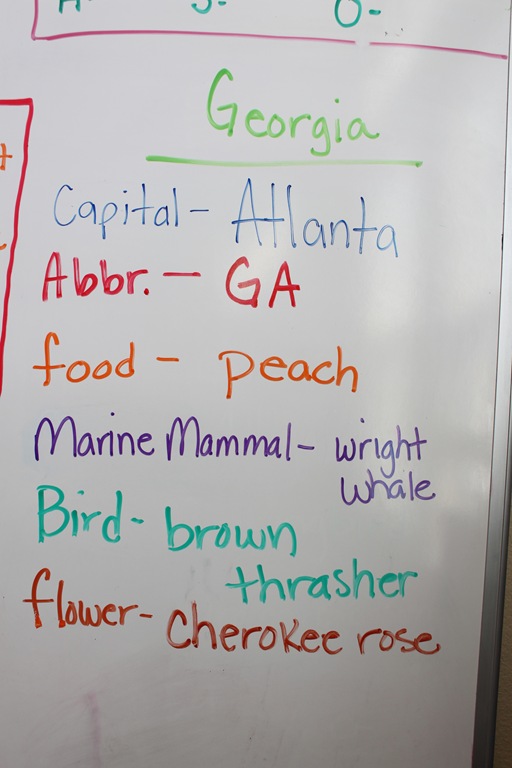 Georgia
Capital- Atlanta
Abbr. - GA
food - peach
Marine Mammal- wright
whale
Bird- brown
thrasher
flower- Cherokee rose